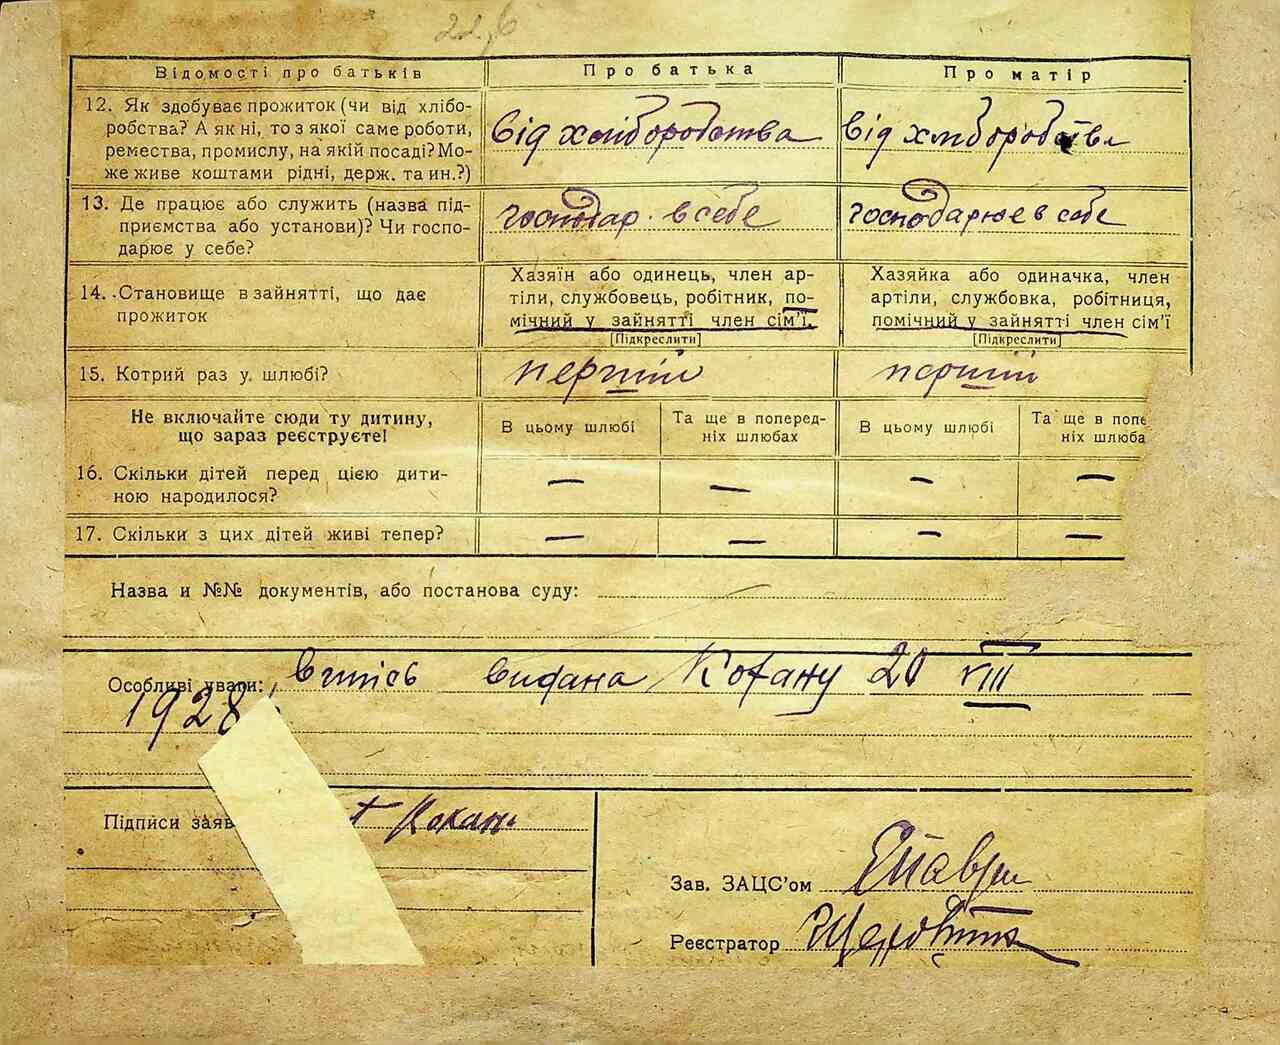 22,6
Відомості про батьків Про батька Про матір
12. Як здобуває прожиток (чи від хлібо-
робства? А як ні, то з якої саме роботи,
ремества, промислу, на якій посаді? Мо-
же живе коштами рідні, держ. та ин.?)
від хліборобства від хліборобства
13. Де працює або служить (назва під-
приємства або установи)? Чи госпо-
дарює у себе?
господар. в себе господарює в себе
14. Становище в зайнятті, що дає
прожиток
Хазяїн або одинець, член ар-
тіли, службовець, робітник, по-
мічний у зайнятті член сім'ї.
[Підкреслити]
Хазяйка або одиначка, член
артіли, службовка, робітниця,
помічний у зайнятті член сім'ї
[Підкреслити]
15. Котрий раз у шлюбі? перший перший
Не включайте сюди ту дитину,
що зараз реєструєте!
В цьому шлюбі
Та ще в поперед-
ніх шлюбах
В цьому шлюбі
Та ще в попе
ніх шлюба
16. Скільки дітей перед цією дити-
ною народилося?
— — — —
17. Скільки з цих дітей живі тепер?
— — — —
Назва и №№ документів, або постанова суду:
Особливі уваги: випісь видана Кохану 20 VIII
1928
Підписи заяв Кохан
Зав. ЗАЦС'ом
Реєстратор